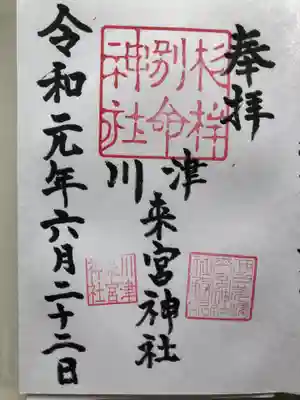 奉拝
川津来宮神社
杉桙
別命
神社
令和元年六月二十二日